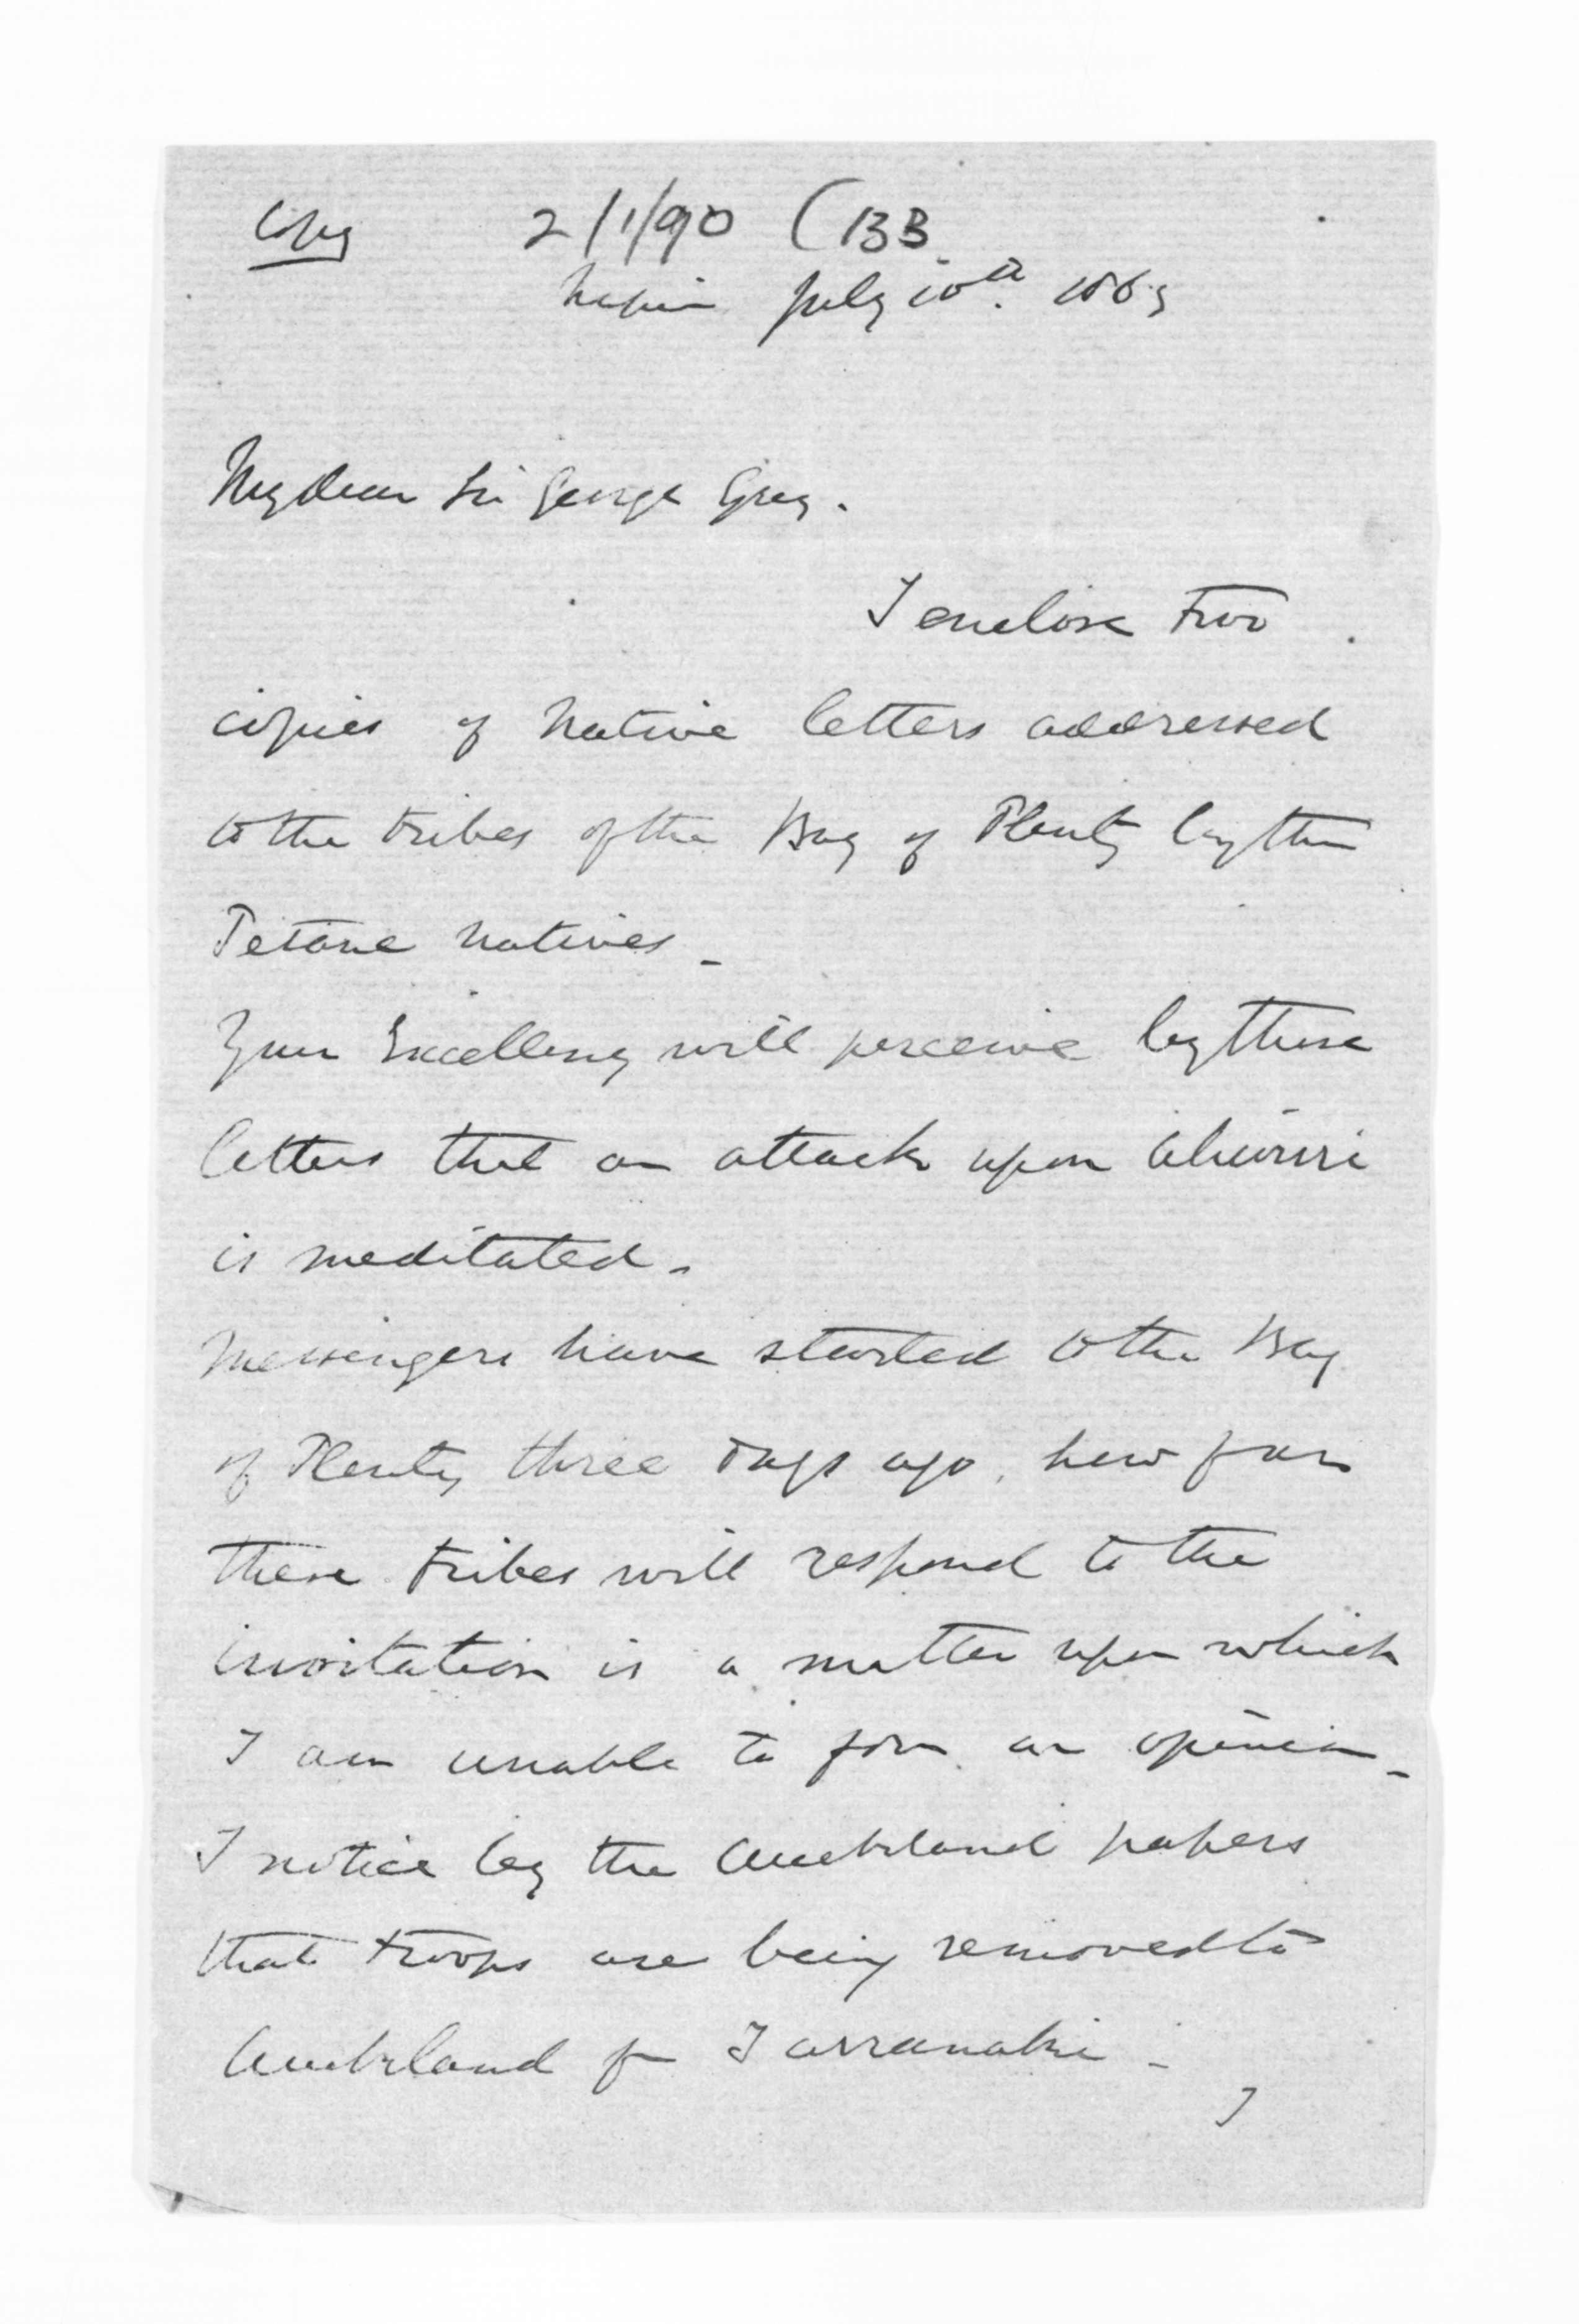 Copy 2/1/90 (13B
Napier July 10th. 1863
My dear Sir George Grey.
I enclose two
copies of Native letters addressed
to the tribes of the Bay of Plenty by the
Petane natives_
Your Excellency will perceive by these
letters that an attack upon Ahuriri
is meditated_
Messengers have started to the Bay
of Plenty three days ago, how far
these tribes will respond to the
invitation is a matter upon which
I am unable to form an opinion_
I notice by the Auckland papers
that troops are being removed to
Auckland fm Tarranaki_
I